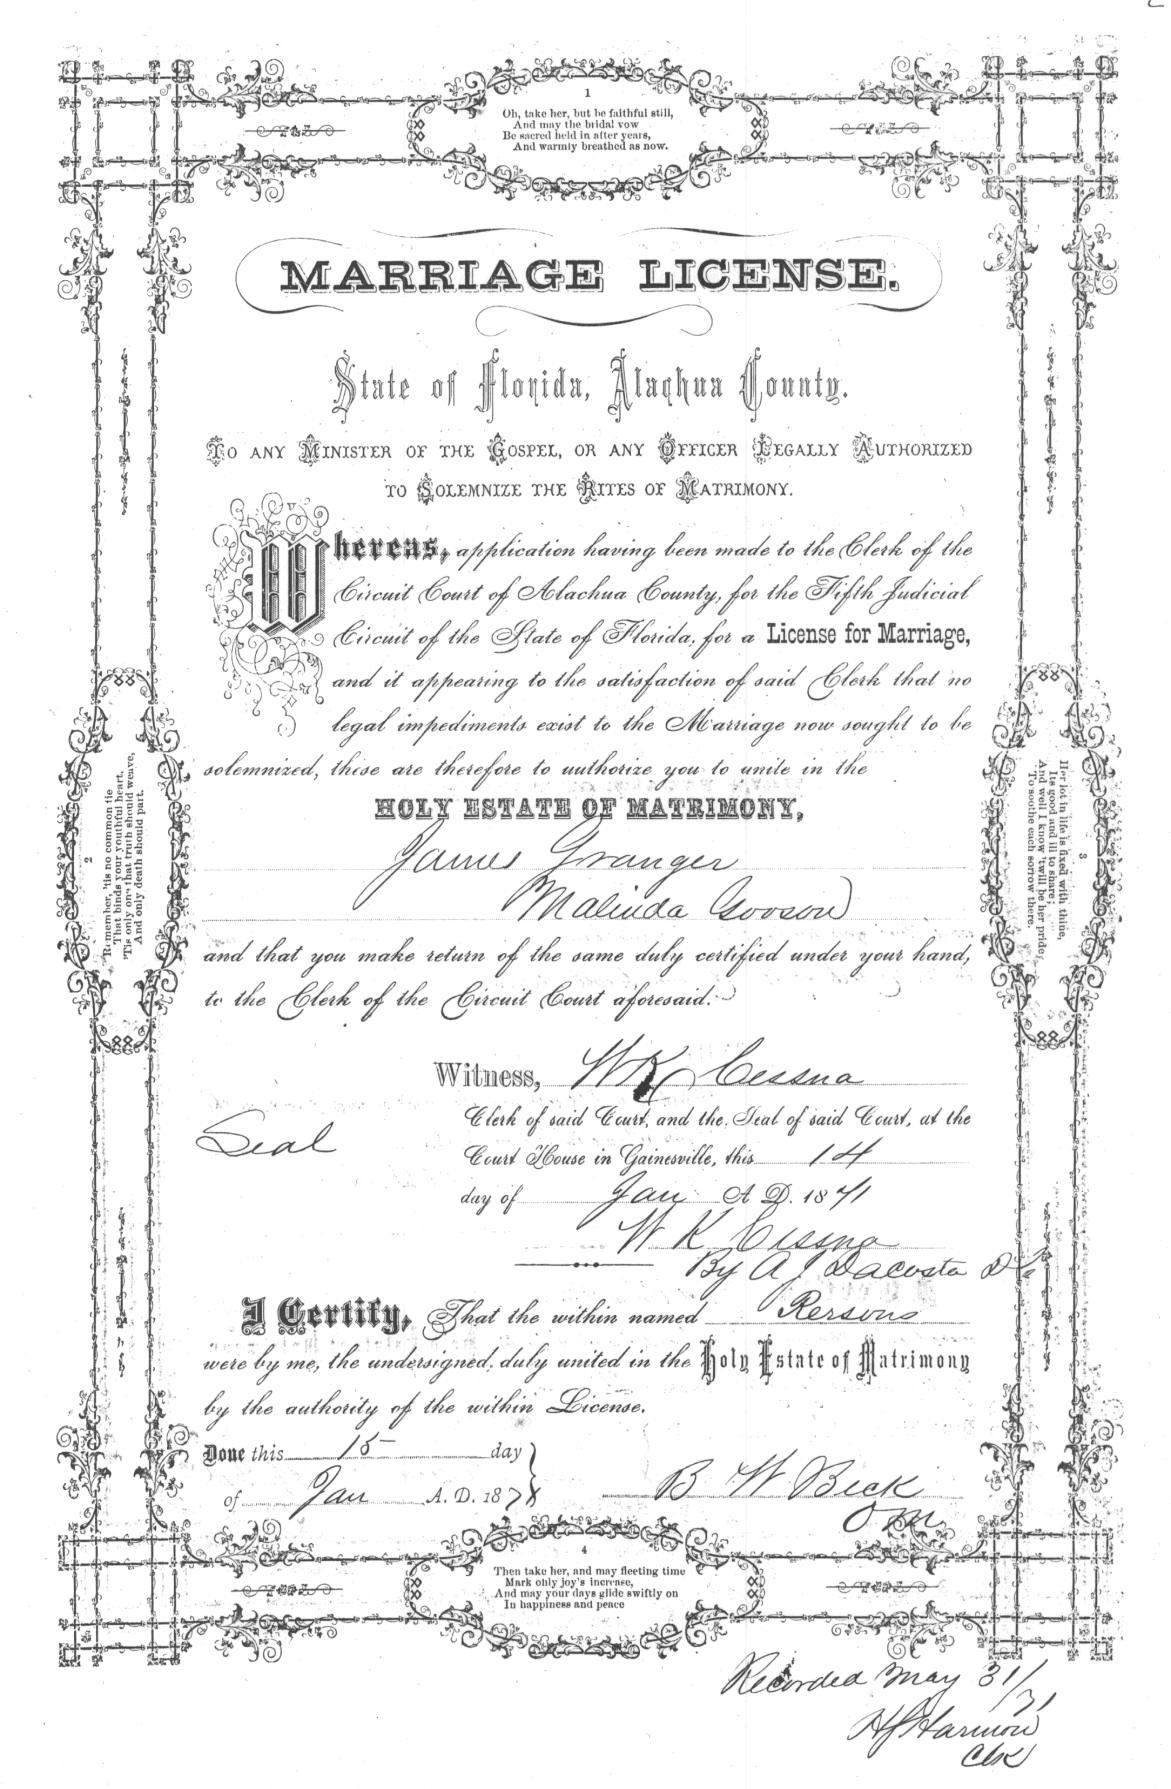 1
Oh, take her, but be faithful still,
And may the bridal vow
Be sacred held in after years,
And warmly breathed as now.
MARRIAGE LICENSE.
State of Florida, Alachua County.
TO ANY MINISTER OF THE GOSPEL, OR ANY OFFICER LEGALLY AUTHORIZED
TO SOLEMNIZE THE RITES OF MATRIMONY.
Whereas, application having been made to the Clerk of the
Circuit Court of Alachua County, for the Fifth Judicial
Circuit of the State of Florida, for a License for Marriage,
and it appearing to the satisfaction of said Clerk that no
legal impediments exist to the Marriage now sought to be
solemnized, these are therefore to authorize you to unite in the
HOLY ESTATE OF MATRIMONY,
James Granger
Malinda Gooson
and that you make return of the same duly certified under your hand,
to the Clerk of the Circuit Court aforesaid.
Witness, W K Cessna
Clerk of said Court, and the Seal of said Court, at the
Seal
Court House in Gainesville, this 14
day of Jan A. D. 1871
W K Cessna
By A J Dacosta D C
I Certify, That the within named Persons
were by me, the undersigned, duly united in the Holy Estate of Matrimony
by the authority of the within License.
Done this 15 day
of Jan A. D. 1871
B W Beck
O M
2
Remember, 'tis no common tie
That binds your youthful heart,
'Tis only one that truth should weave,
And only death should part.
3
Her lot in life is fixed with thine,
Its good and ill to share;
And well I know 'twill be her pride,
To soothe each sorrow there.
4
Then take her, and may fleeting time
Mark only joy's increase,
And may your days glide swiftly on
In happiness and peace
Recorded May 31/71
H J Harmon
Clk